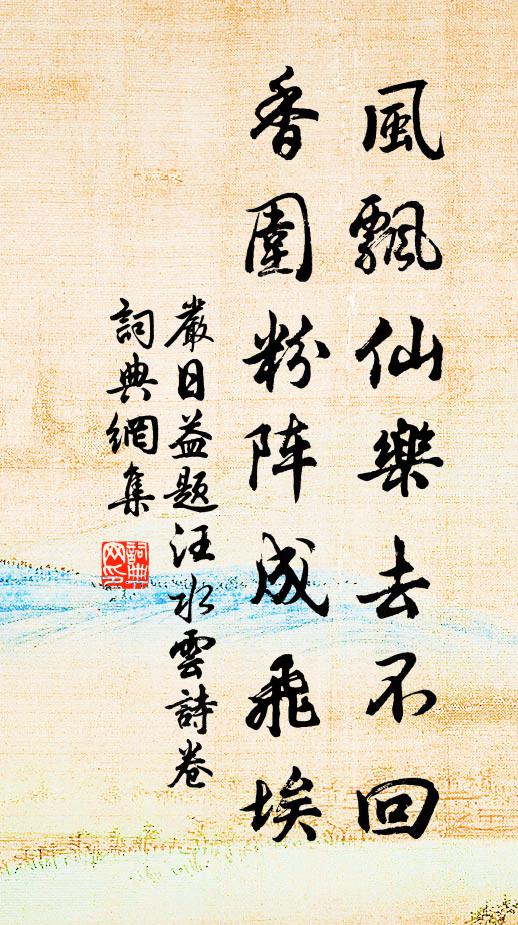 風飄仙樂去不回
香圍粉阵成飛埃
嚴日益题汪水雲詩卷
詞典網集
詞典
网印